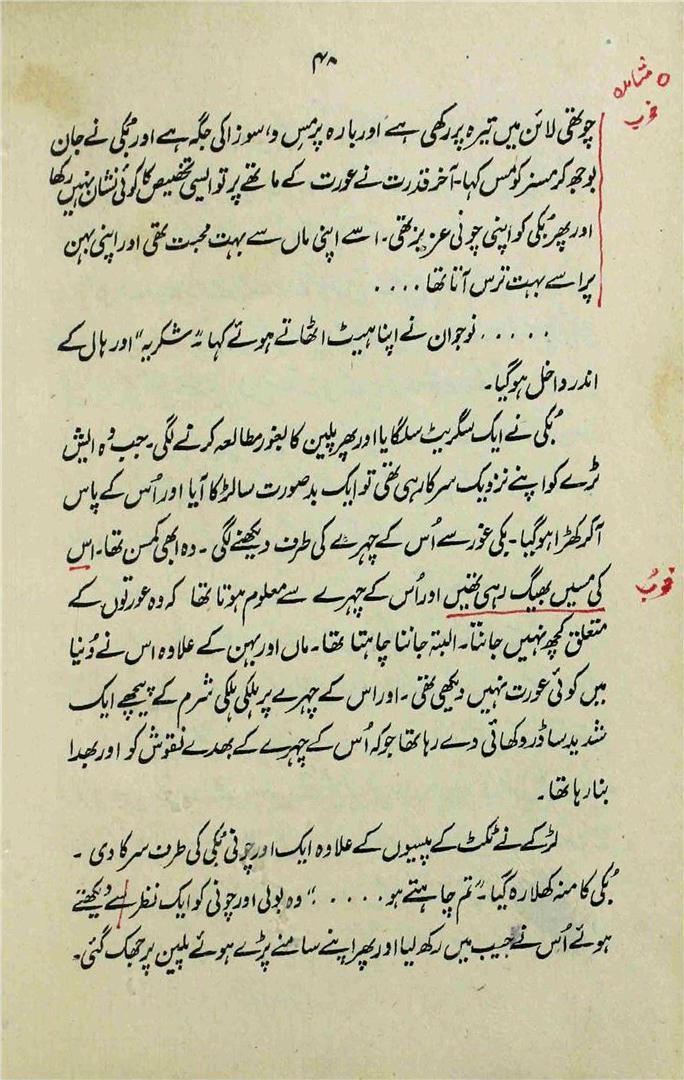 ۴۸
مشاہدہ
خوب
چوتھی لائن میں تیرہ پر رکھی ہے اور بارہ پر مِس دِ، سوزا کی جگہ ہے اور بُکی نے جان
بوجھ کر مسز کو مِس کہا۔ آخر قدرت نے عورت کے ماتھے پر تو ایسی تخصیص کا کوئی نشان نہیں رکھا
اور پھر بُکی کو اپنی چونی عزیز تھی۔ اسے اپنی ماں سے بہت محبت تھی اور اپنی بہن
پر اسے بہت ترس آتا تھا ....
..... نوجوان نے اپنا ہیٹ اٹھاتے ہوئے کہا "شکریہ" اور ہال کے
اندر داخل ہو گیا۔
بُکی نے ایک سگریٹ سلگایا اور پھر پلین کا بغور مطالعہ کرنے لگی۔ جب وہ ایش
ٹرے کو اپنے نزدیک سرکا رہی تھی تو ایک بدصورت سا لڑکا آیا اور اُس کے پاس
آکر کھڑا ہو گیا۔ بکی غور سے اُس کے چہرے کی طرف دیکھنے لگی۔ وہ ابھی کمسن تھا۔ اس
کی مسیں بھیگ رہی تھیں اور اُس کے چہرے سے معلوم ہوتا تھا کہ وہ عورتوں کے
خوب
متعلق کچھ نہیں جانتا۔ البتہ جاننا چاہتا تھا۔ ماں اور بہن کے علاوہ اس نے دُنیا
میں کوئی عورت نہیں دیکھی تھی۔ اور اس کے چہرے پر ہلکی ہلکی شرم کے پیچھے ایک
شدید سا ڈر دکھائی دے رہا تھا جو کہ اُس کے چہرے کے بھدے نقوش کو اور بھدا
بنا رہا تھا۔
لڑکے نے ٹکٹ کے پیسوں کے علاوہ ایک اور چونی بُکی کی طرف سرکا دی۔
بُکی کا منہ کھلا رہ گیا۔ "تم چاہتے ہو ....." وہ بولی اور چونی کو ایک نظر اسے دیکھتے
ہوئے اُس نے جیب میں رکھ لیا اور پھر اپنے سامنے پڑے ہوئے پلین پر جھک گئی۔